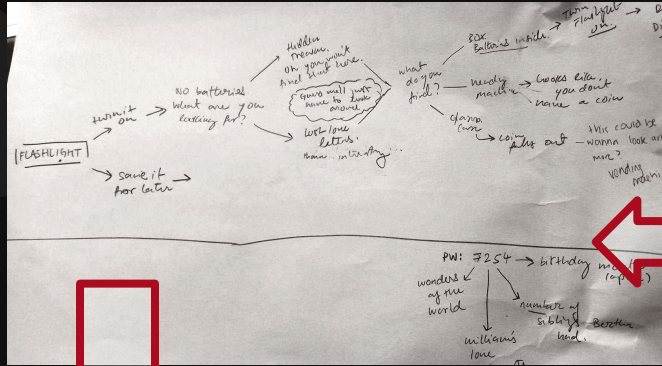 FLASHLIGHT
turn it
on
save it
for later
NO batteries
What are you
looking for?
Hidden
treasure.
Oh you won't
find that here.
Guess we'll just
have to look
around
Lost love
letters.
Hmm interesting...
what
do you
find?
BOX
Batteries inside.
Turn
Flashlight
on.
machine
Looks like
you don't
have a coin
glass
coin
falls out
this could be
wanna look
more?
vending
PW: 7254
birthday
wonders
of the
world
william's
love
number of
siblings
had.